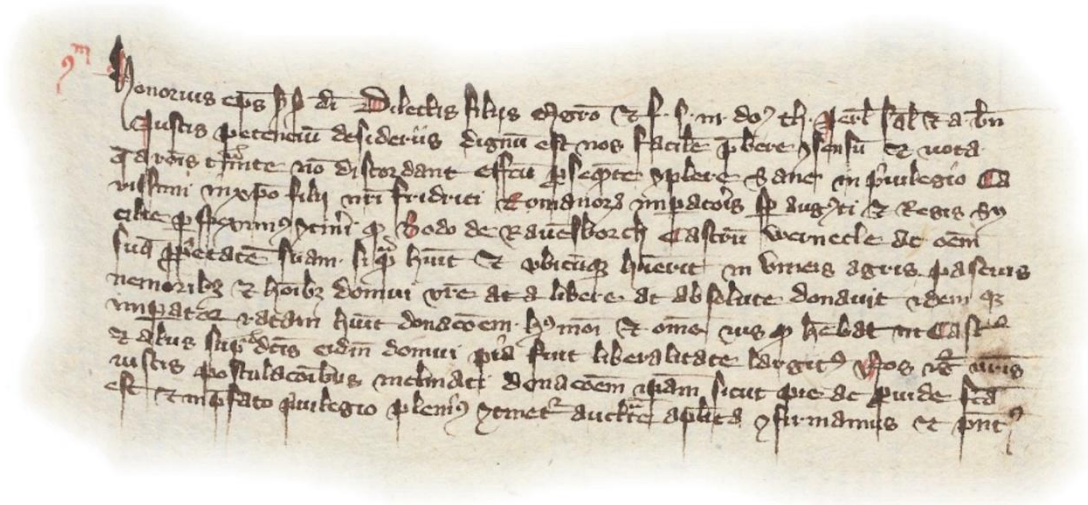 Honorius eps s s di Dilectis filijs mgro et f. s. m. do9 th. Jerl sal et a. bn
Justis petenciu desiderijs dignu est nos facile pbere 9sensu et uota
q a rois tmite no discordant effcu psequte 9plere Sane in puilegio Ca
rissimi in xpo filij nri Fridrici Romanorz impatoris sp augusti et Regis Sy
cilie pspeximus 9tineri q Bodo de Rauesborch Castru Wernecle ac oem
sua ppetate suam. siqua huit et ubicuq huerit in uineis agris pascuis
nemoribz et hoibz domui vre at a libere ac absolute donauit idem q
impator ratam huit donacoem. h9moi et ome ius q hebat in Castro
et alijs supdcis eidm domui pia fuit liberalitate largitus Nos igr uris
iustis postulacoibus inclinati donacoem ipam sicut pie ac puide fca
est et in pfato puilegio pleni9 9tinetr auctte aplica 9firmamus et pnt9